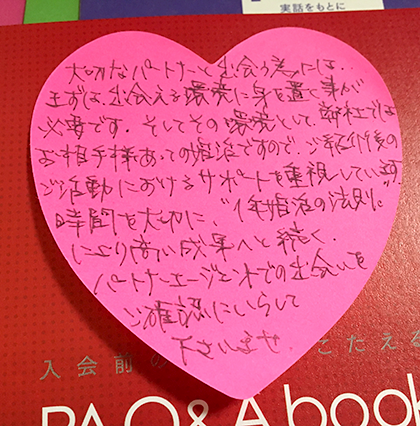 実話をもとに
大切なパートナーと出会う為には、
まずは、出会える環境に身を置く事が
必要です。そしてその環境として、弊社では
お相手様あっての婚活ですので、ご紹介後の
ご活動におけるサポートを重視しています。
時間を大切に、"1年婚活の法則"。
により高い成果へと続く、
パートナーエージェントでの出会いを
ご確認にいらして
下さいませ。
入会前の こたえる
PA Q&A book